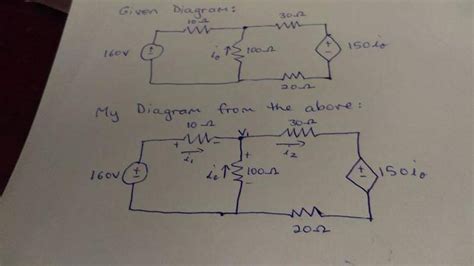 Given Diagram:
10Ω 30Ω
160V + - i₀ ↑ 100Ω + - 150i₀
20Ω
My Diagram from the above:
10Ω V₁ 30Ω
+ - + i₁ i₂
160V + - i₀ ↑ 100Ω - + - 150i₀
20Ω